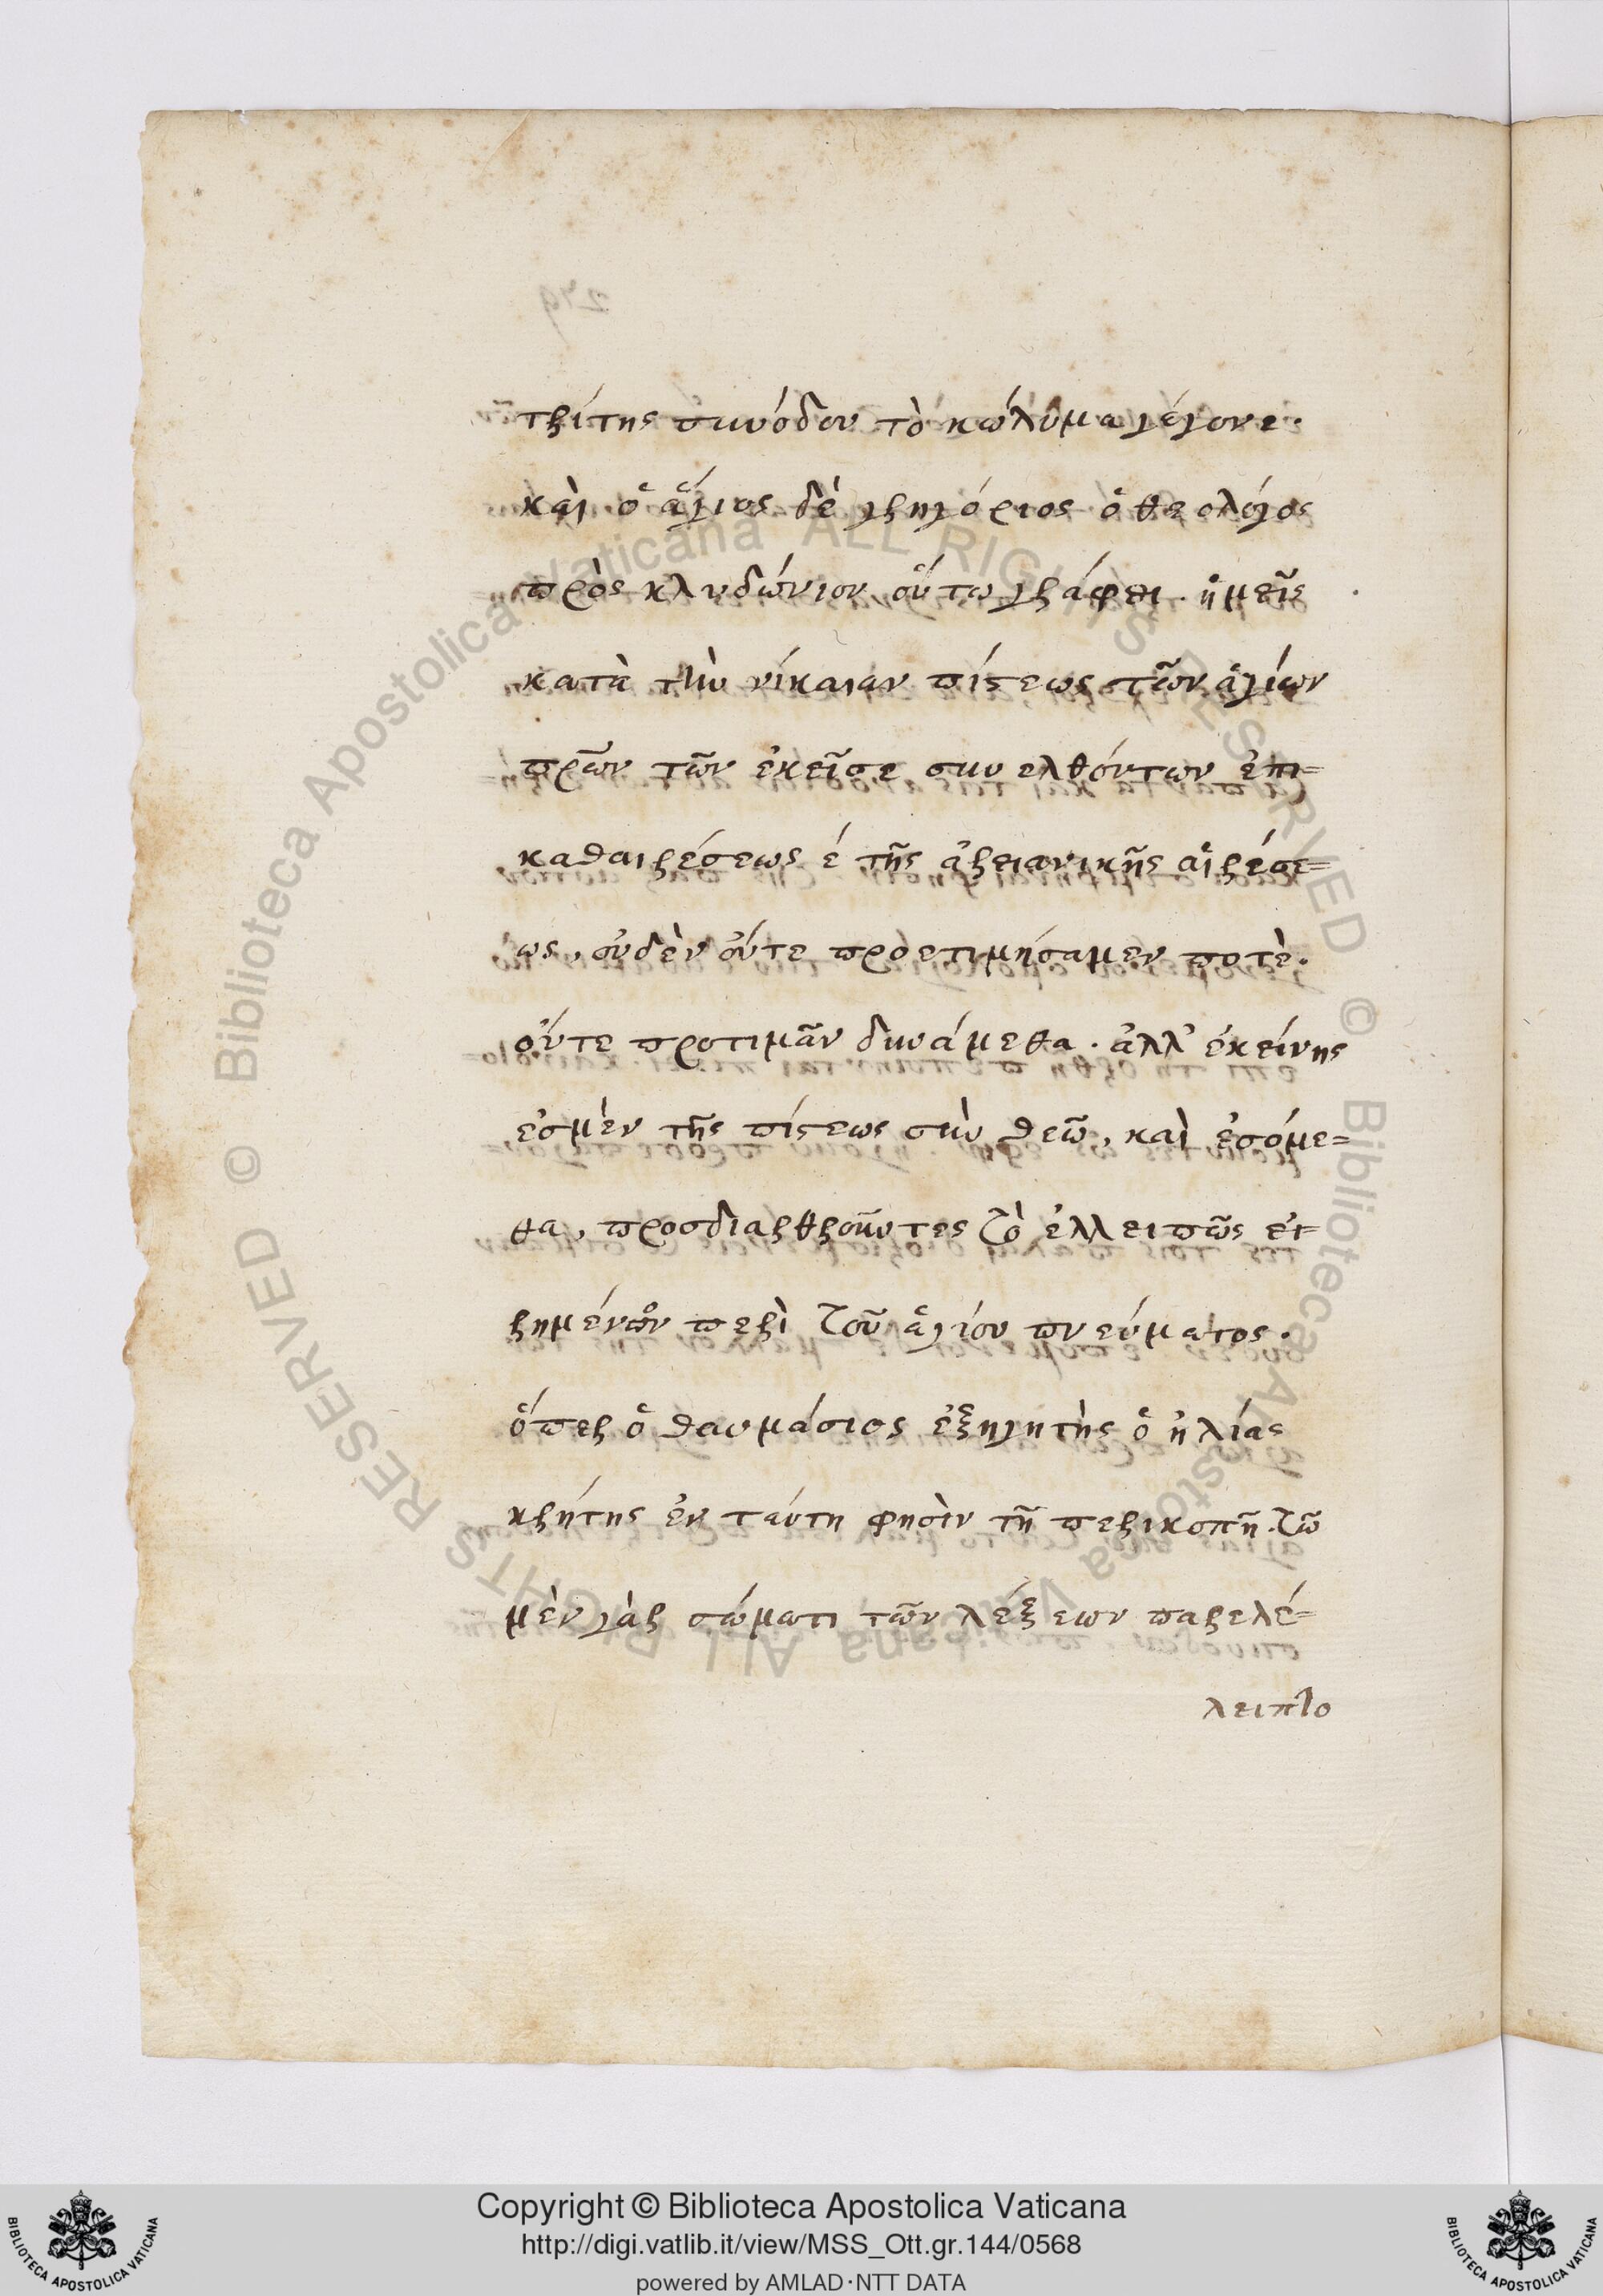 τρίτης συνόδου τὸ κώλυμα γέγονε.
καὶ ὁ ἅγιος δὲ γρηγόριος ὁ θεολόγος
πρὸς κλυδώνιον οὕτω γράφει. ἡμεῖς
κατὰ τὴν νίκαιαν πίστεως τῶν ἁγίων
πρῶν τῶν ἐκεῖσε συνελθόντων ἐπι=
καθαιρέσεως έ τῆς ἀρειανικῆς αἱρέσε=
ως, οὐδὲν οὔτε προετιμήσαμεν ποτὲ.
οὔτε προτιμᾶν δυνάμεθα. ἀλλ' ἐκείνης
ἐσμὲν τῆς πίστεως σὺν θεῶ, καὶ ἐσόμε=
θα, προσδιαρθροῦντες τὸ ἐλλειπῶς εἰ=
ρημένον περὶ τοῦ ἁγίου πνεύματος.
ὅπερ ὁ θαυμάσιος ἐξηγητὴς ὁ ἠλίας
κρήτης ἐν ταύτη φησὶν τῆ περικοπῆ. τῶ
μὲν γὰρ σώματι τῶν λέξεων παρελέ=
λειπτο
Copyright © Biblioteca Apostolica Vaticana
http://digi.vatlib.it/view/MSS_Ott.gr.144/0568
powered by AMLAD·NTT DATA
BIBLIOTECA APOSTOLICA VATICANA
BIBLIOTECA APOSTOLICA VATICANA
© Biblioteca Apostolica Vaticana ALL RIGHTS RESERVED
© Biblioteca Apostolica Vaticana ALL RIGHTS RESERVED